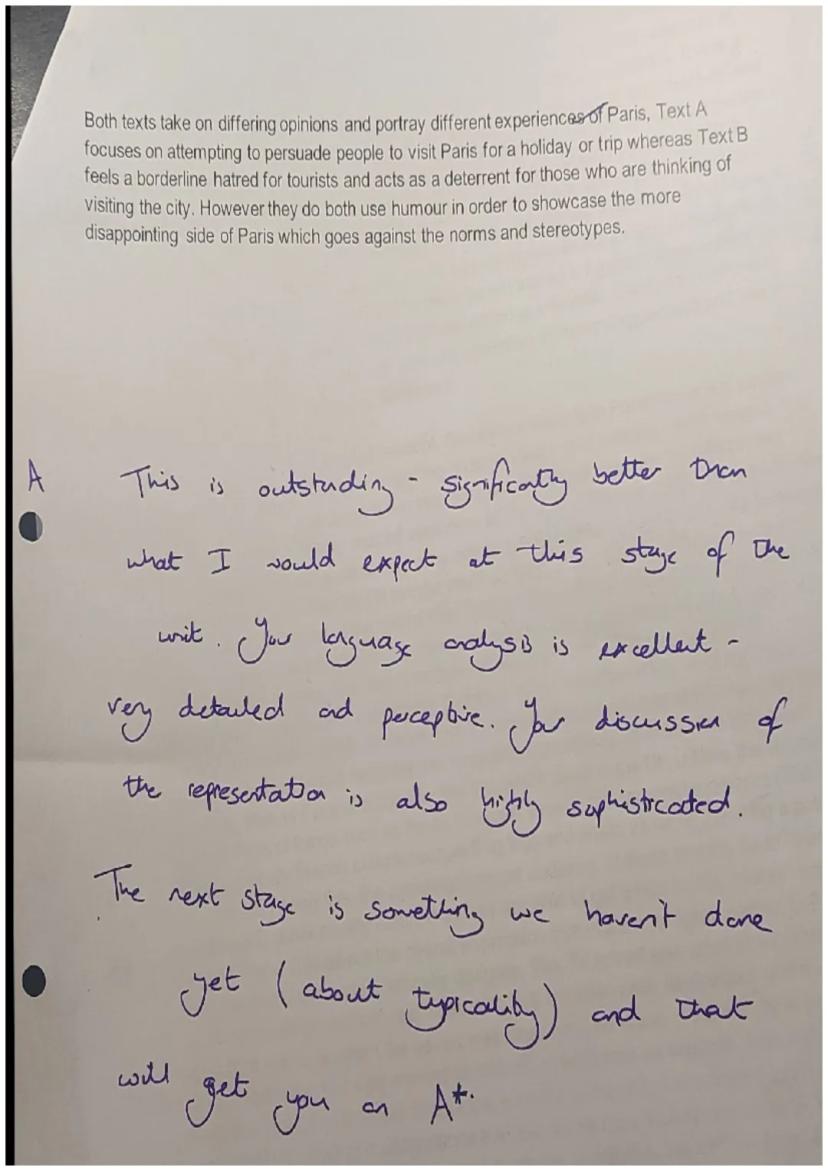 Both texts take on differing opinions and portray different experiences of Paris, Text A
focuses on attempting to persuade people to visit Paris for a holiday or trip whereas Text B
feels a borderline hatred for tourists and acts as a deterrent for those who are thinking of
visiting the city. However they do both use humour in order to showcase the more
disappointing side of Paris which goes against the norms and stereotypes.
A This is outstanding - significantly better than
what I would expect at this stage of the
unit. Your language analysis is excellent -
very detailed and perceptive. Your discussion of
the representation is also highly sophisticated.
The next stage is something we haven't done
yet (about typicality) and that
will get you an A*.